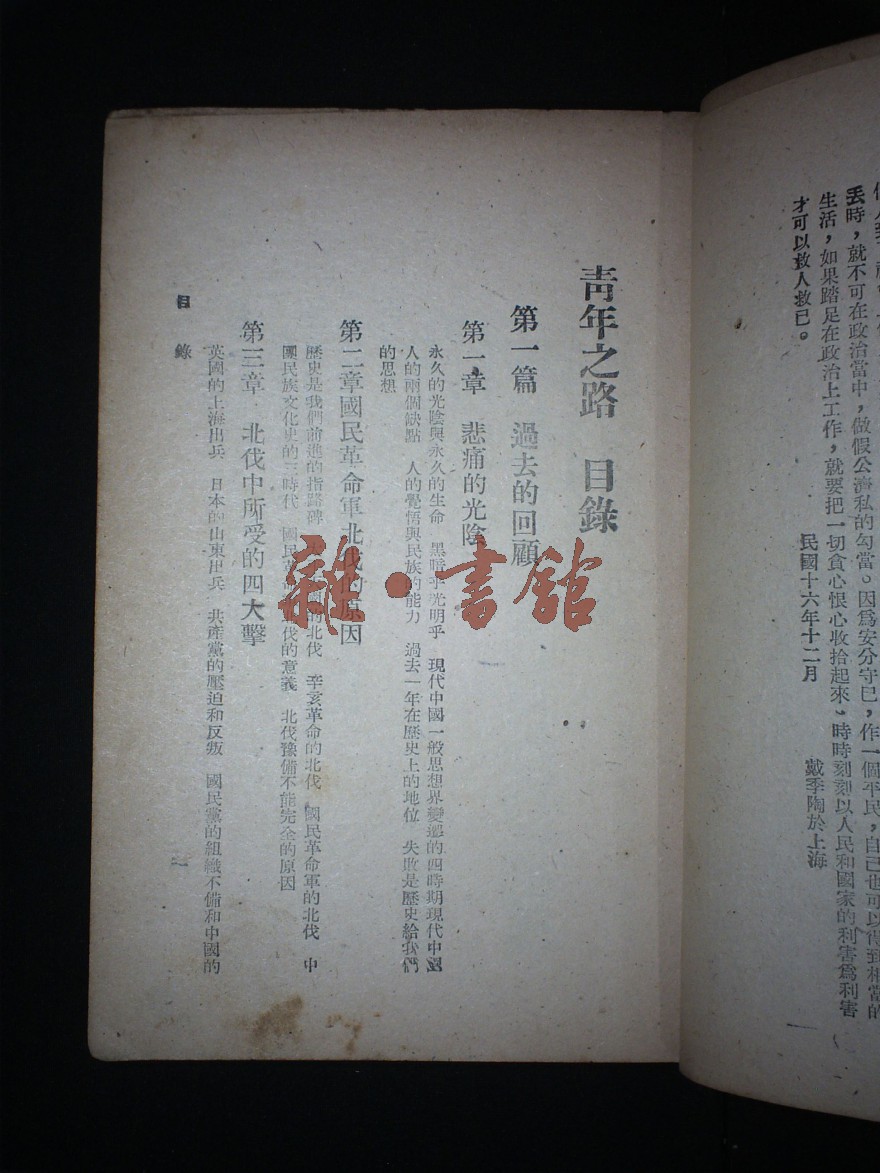 丟時，就不可在政治當中，做假公濟私的勾當。因爲安分守已，作一個平民，自己也可以得到相當的
生活，如果踏足在政治上工作，就要把一切貪心恨心收拾起來、時時刻刻以人民和國家的利害爲利害
才可以救人救已。
民國十六年十二月
戴季陶於上海
一
青年之路 目錄
第一篇 過去的回顧
第一章 悲痛的光陰
永久的光陰與永久的生命 黑暗乎光明乎 現代中國一般思想界變遷的四時期現代中國
人的兩個缺點 人的覺悟與民族的能力 過去一年在歷史上的地位 失敗是歷史給我們
的思想
第二章國民革命軍北伐的原因
歷史是我們前進的指路碑 國的北伐 辛亥革命的北伐 國民革命軍的北伐 中
國民族文化史的三時代 國民革命 北伐的意義 北伐豫備不能完全的原因
第三章 北伐中所受的四大擊
英國的上海出兵 日本的山東出兵 共產黨的壓迫和反叛 國民黨的組織不備和中國的
目錄
一
雜·書館